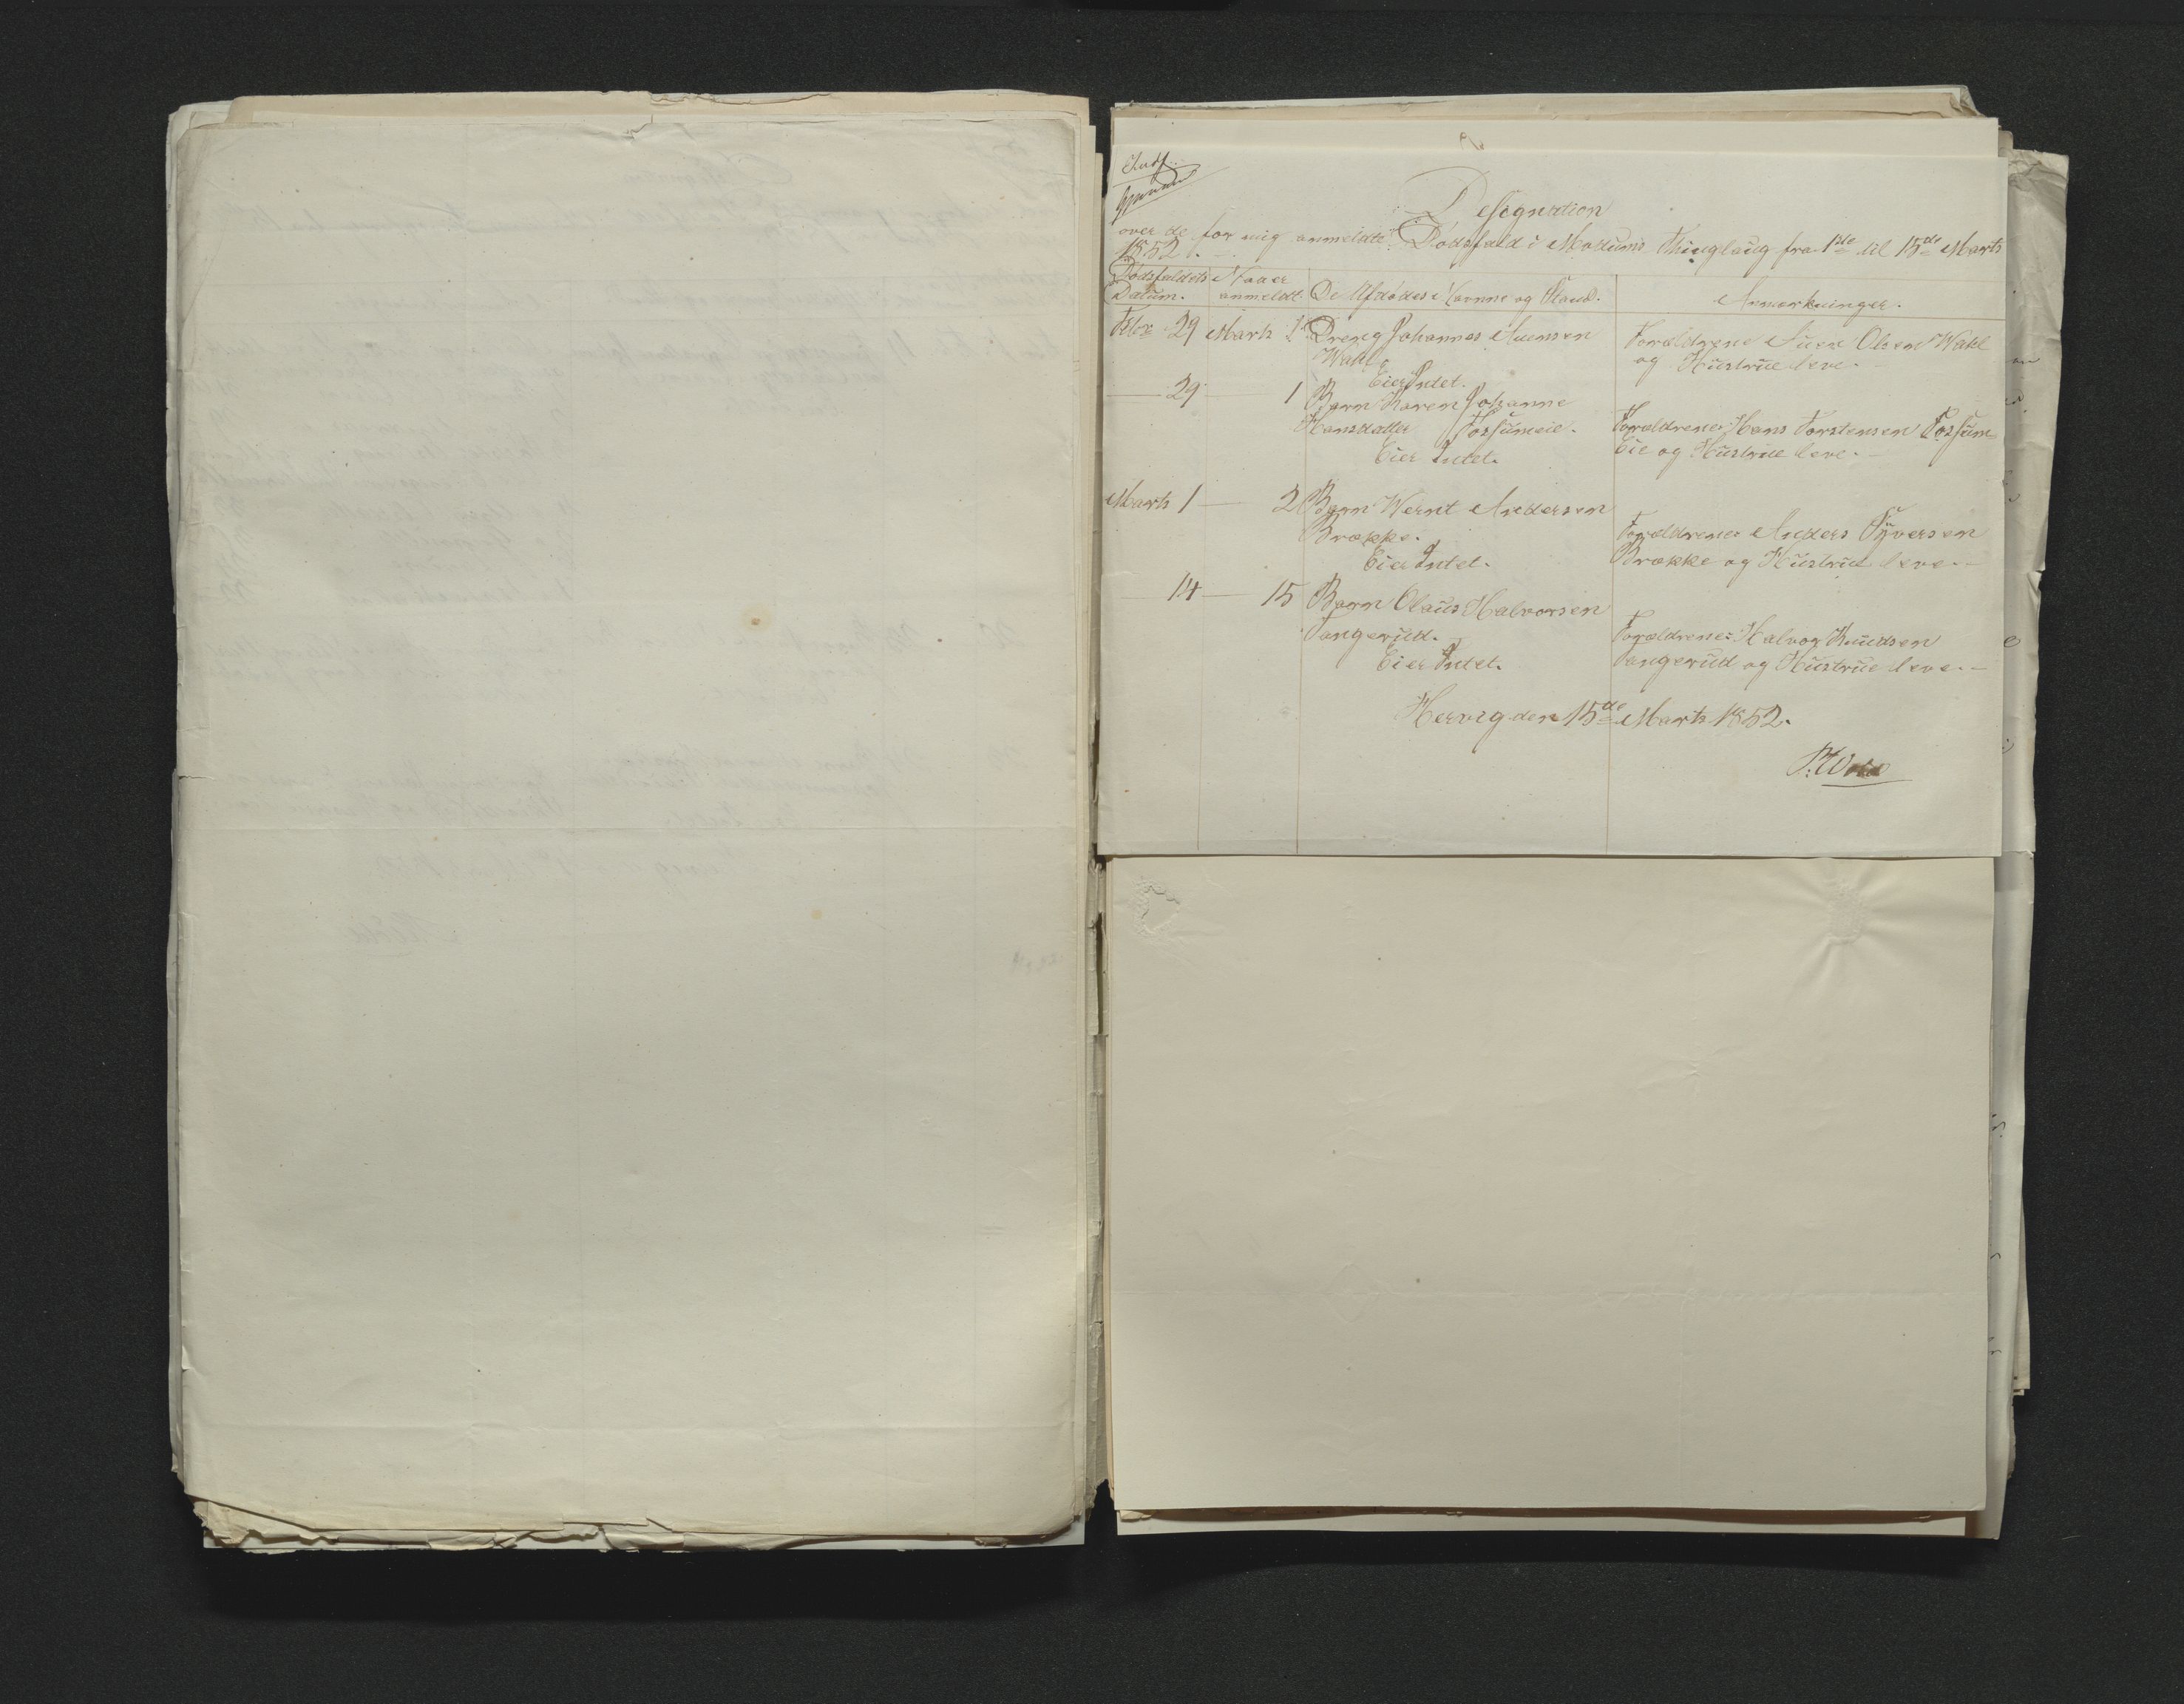 Designation
over de for mig anmeldte Dödsfald i Modums Thinglaug fra 1ste til 15de Marts
1852.
Dödsfaldets Naar
Datum. anmeldt. De Afdödes Navne og Stand. Anmærkninger.
Febr 29 Marts 1 Dreng Johannes Wahl Forældrene Olsen Wahl
og Hustrue leve.
Eier Intet.
— 29 — 1 Barn Karen Johanne
Hansdatter Fossumeie. Forældrene: Hans Torstensen Fossum
Eier Intet. Eie og Hustrue leve.
Marts 1 — 2 Barn Wernt Andersen
Brække. Forældrene: Anders Syversen
Eier Intet. Brække og Hustrue leve. —
— 14 — 15 Barn Olaus Halvorsen
Tangerud. Forældrene: Halvor Knudsen
Eier Intet. Tangerud og Hustrue leve. —
Hervig den 15de Marts 1852.